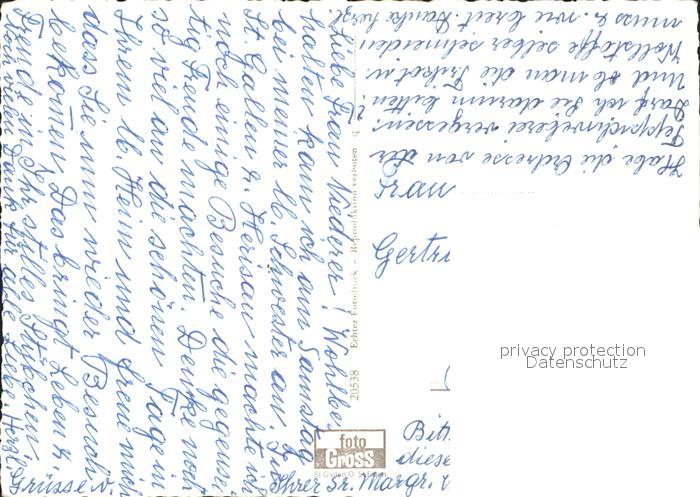 Liebe Frau Niederer! Wohlbe-
halten kam ich am Samstag
bei meiner lb. Schwester an. In
St. Gallen & Herisau machte ich
noch einige Besuche die gegensei-
tig Freude machten. Denke noch
so viel an die schönen Tage in
Ihrem lb. Heim und freue mich
dass Sie nun wieder Besuch
bekomen. Das bringt Leben &
Freude in Ihr stilles Stübchen.
Grüsse v.
Ihrer Sr. Margr.
Habe die Adresse von der
Teppichweberei vergessen.
Darf ich Sie darum bitten?
Und ob man die Trikot u.
Wollstoffe selber schneiden
muss & wie breit. Danke herzl.
20538 Echter Fotodruck - Reproduktion verboten
foto
Gross
St. Gallen
Frau
Gertr
Bitt
diese
privacy protection
Datenschutz